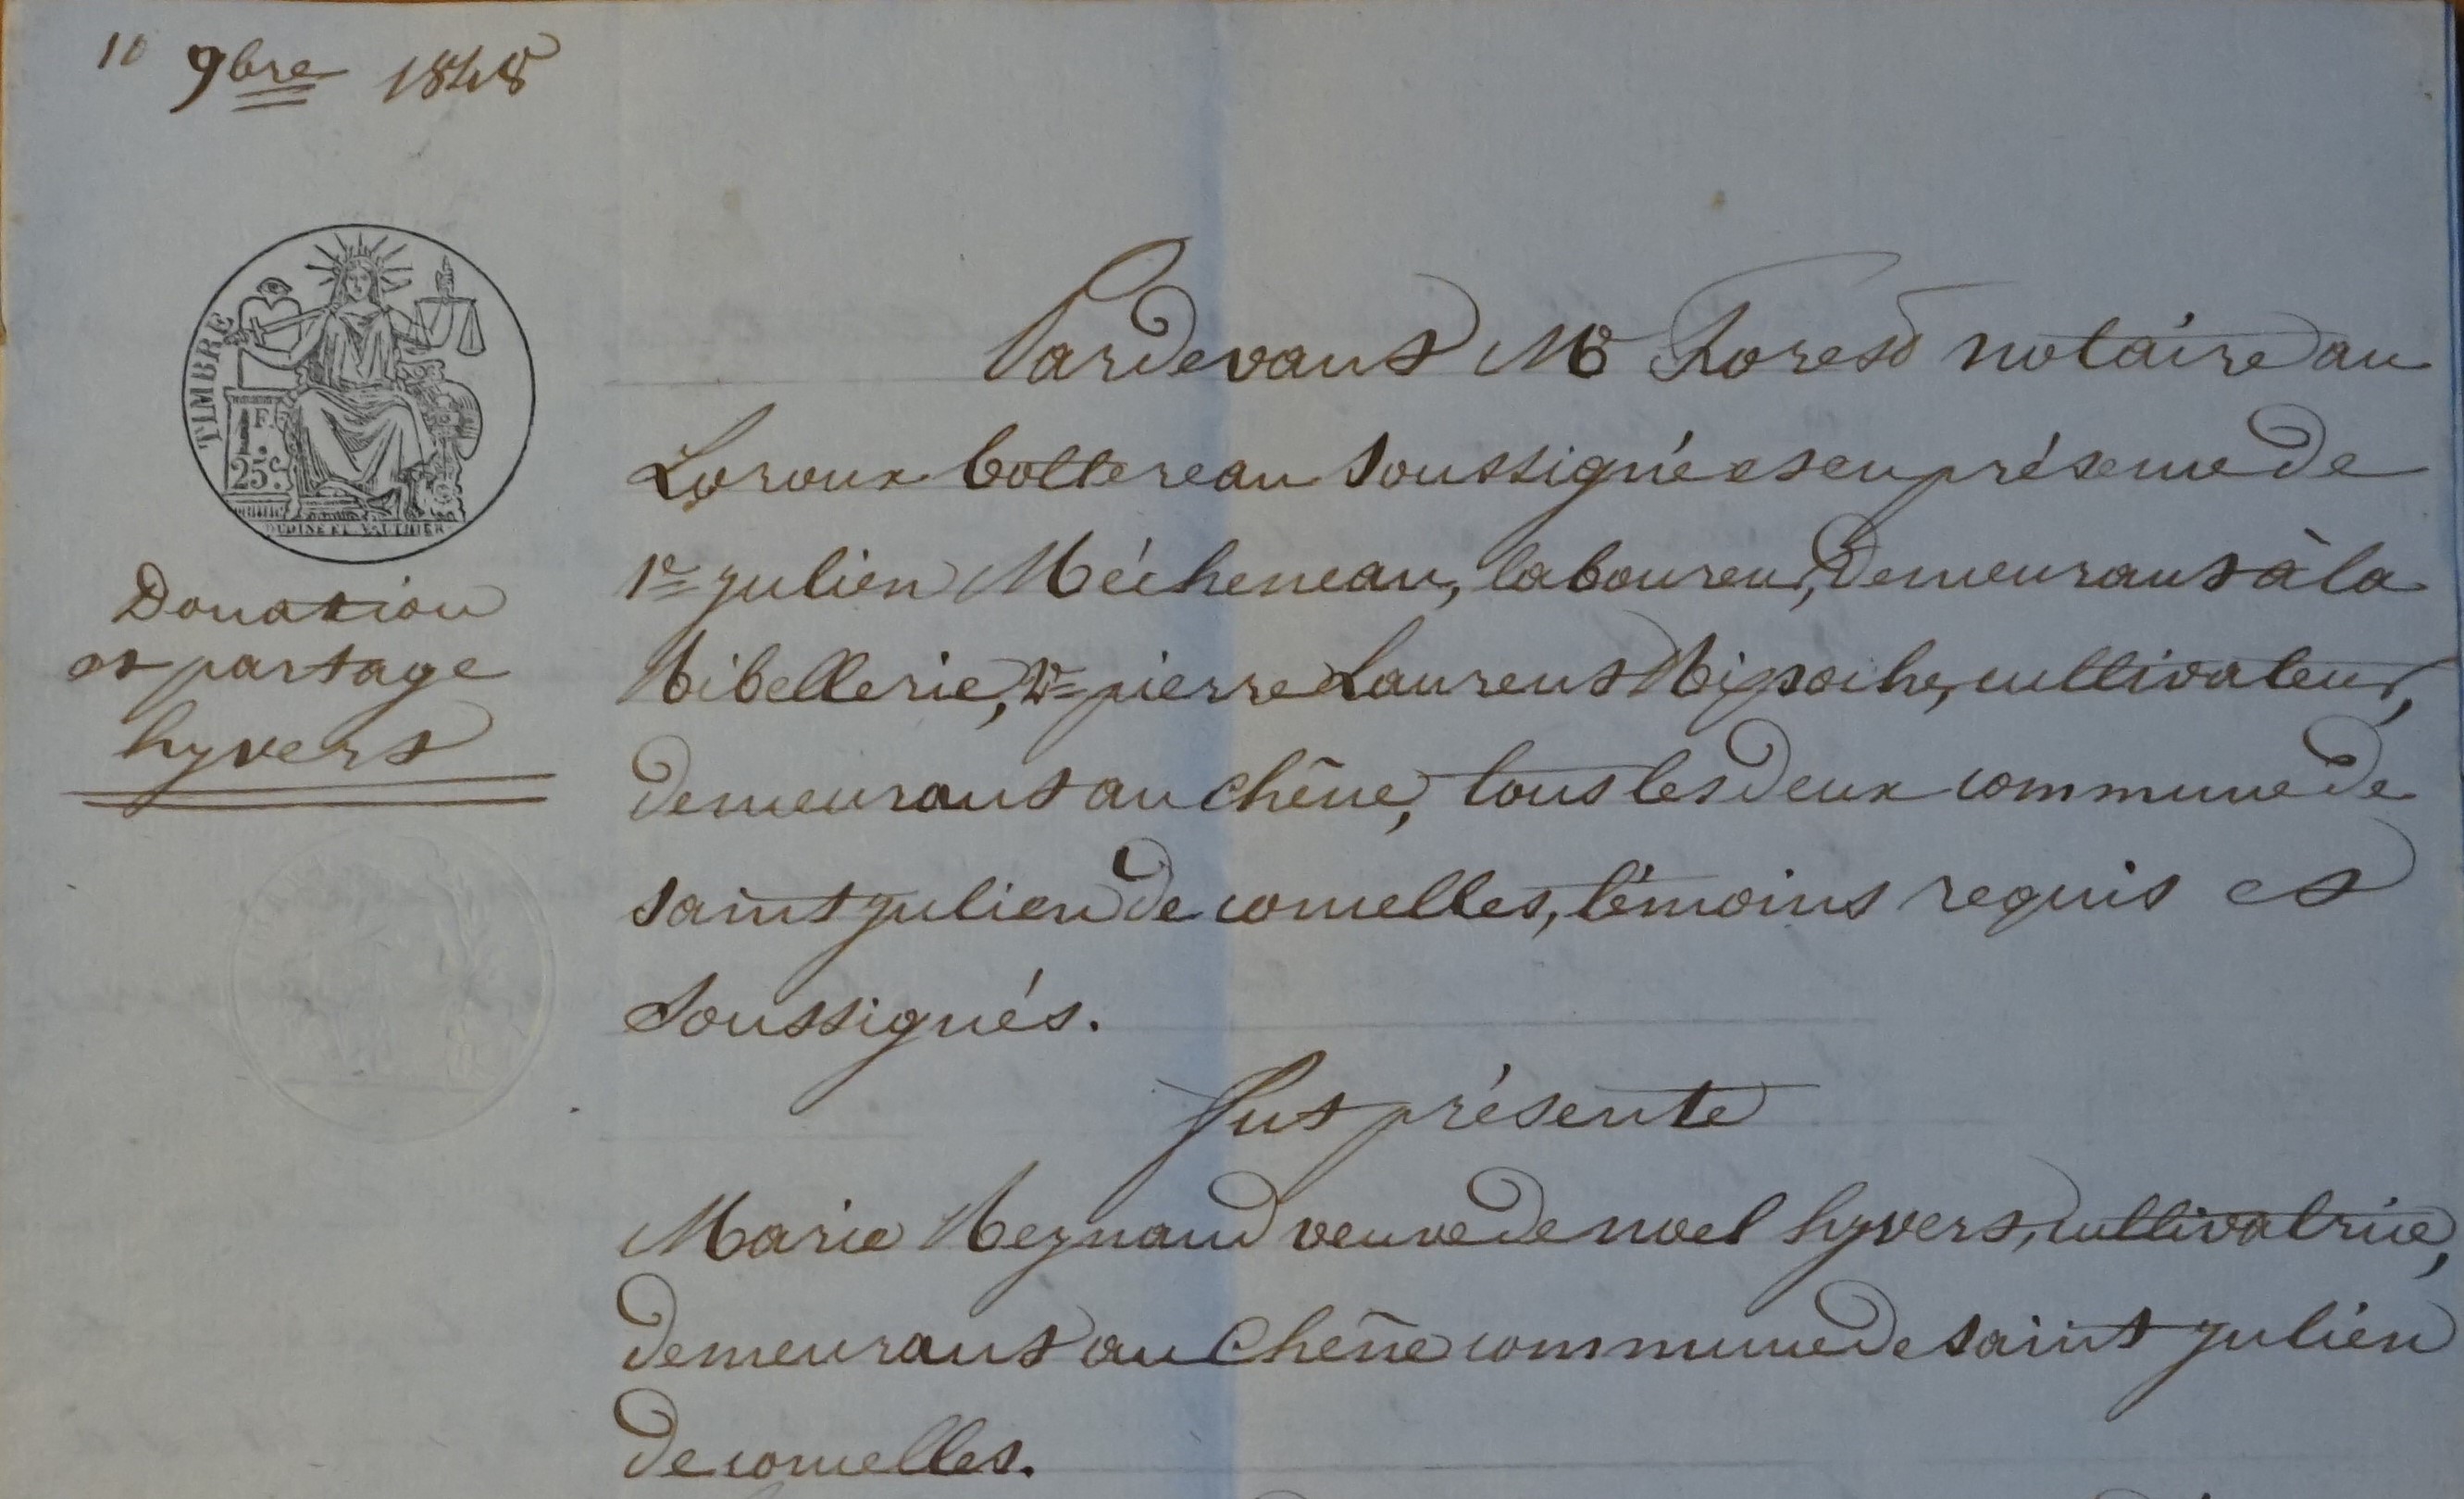 10 9bre 1848
TIMBRE
1F.
25c.
OUDINE ET VAUTHIER
Donation
et partage
hyvert
Pardevant Me Forest notaire au
Loroux bottereau soussigné et en présence de
1e julien Mécheneau, laboureur, demeurant à la
Ribellerie, 2e pierre Laurent Ripoche, cultivateur,
demeurant au chêne, tous les deux commune de
saint julien de concelles, témoins requis et
soussignés.
Fut présente
Marie Regnaud veuve de noel hyvert, cultivatrice,
demeurant au Chêne commune de saint julien
de concelles.